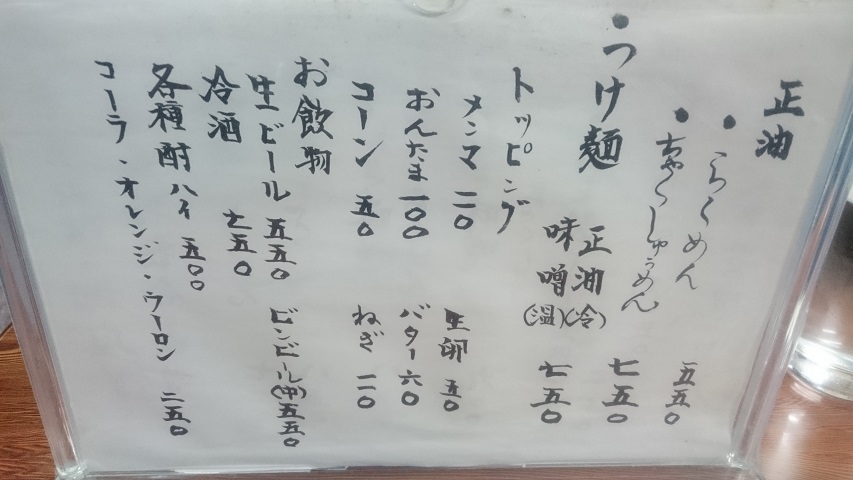 正油
・らーめん 五五〇
・ちゃーしゅーめん 七五〇
・つけ麺 正油(冷)
味噌(温) 七五〇
トッピング
メンマ 二〇 生卵 五〇
おんたま 一〇〇 バター 六〇
コーン 五〇 ねぎ 二〇
お飲物
生ビール 五五〇 ビンビール(中) 五五〇
冷酒 七五〇
各種酎ハイ 五〇〇
コーラ・オレンジ・ウーロン 二五〇